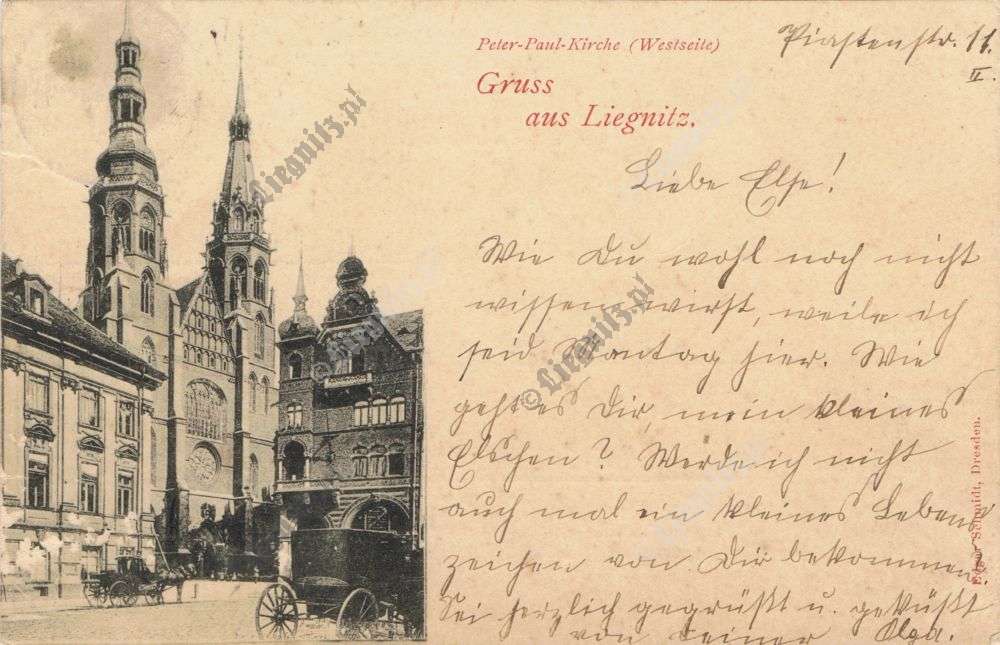 Peter-Paul-Kirche (Westseite)
Piastenstr. 11.
II.
Gruss
aus Liegnitz.
Liebe Else!
Wie Du wohl noch nicht
wissen wirst, weile ich
seid Sontag hier. Wie
geht es Dir, mein kleines
Elschen? Werde ich nicht
auch mal ein kleines Lebens
zeichen von Dir bekommen?
Sei herzlich gegrüßt u. geküßt
von Deiner Olga.
Edgar Schmidt, Dresden.
© Liegnitz.pl
Liegnitz.pl